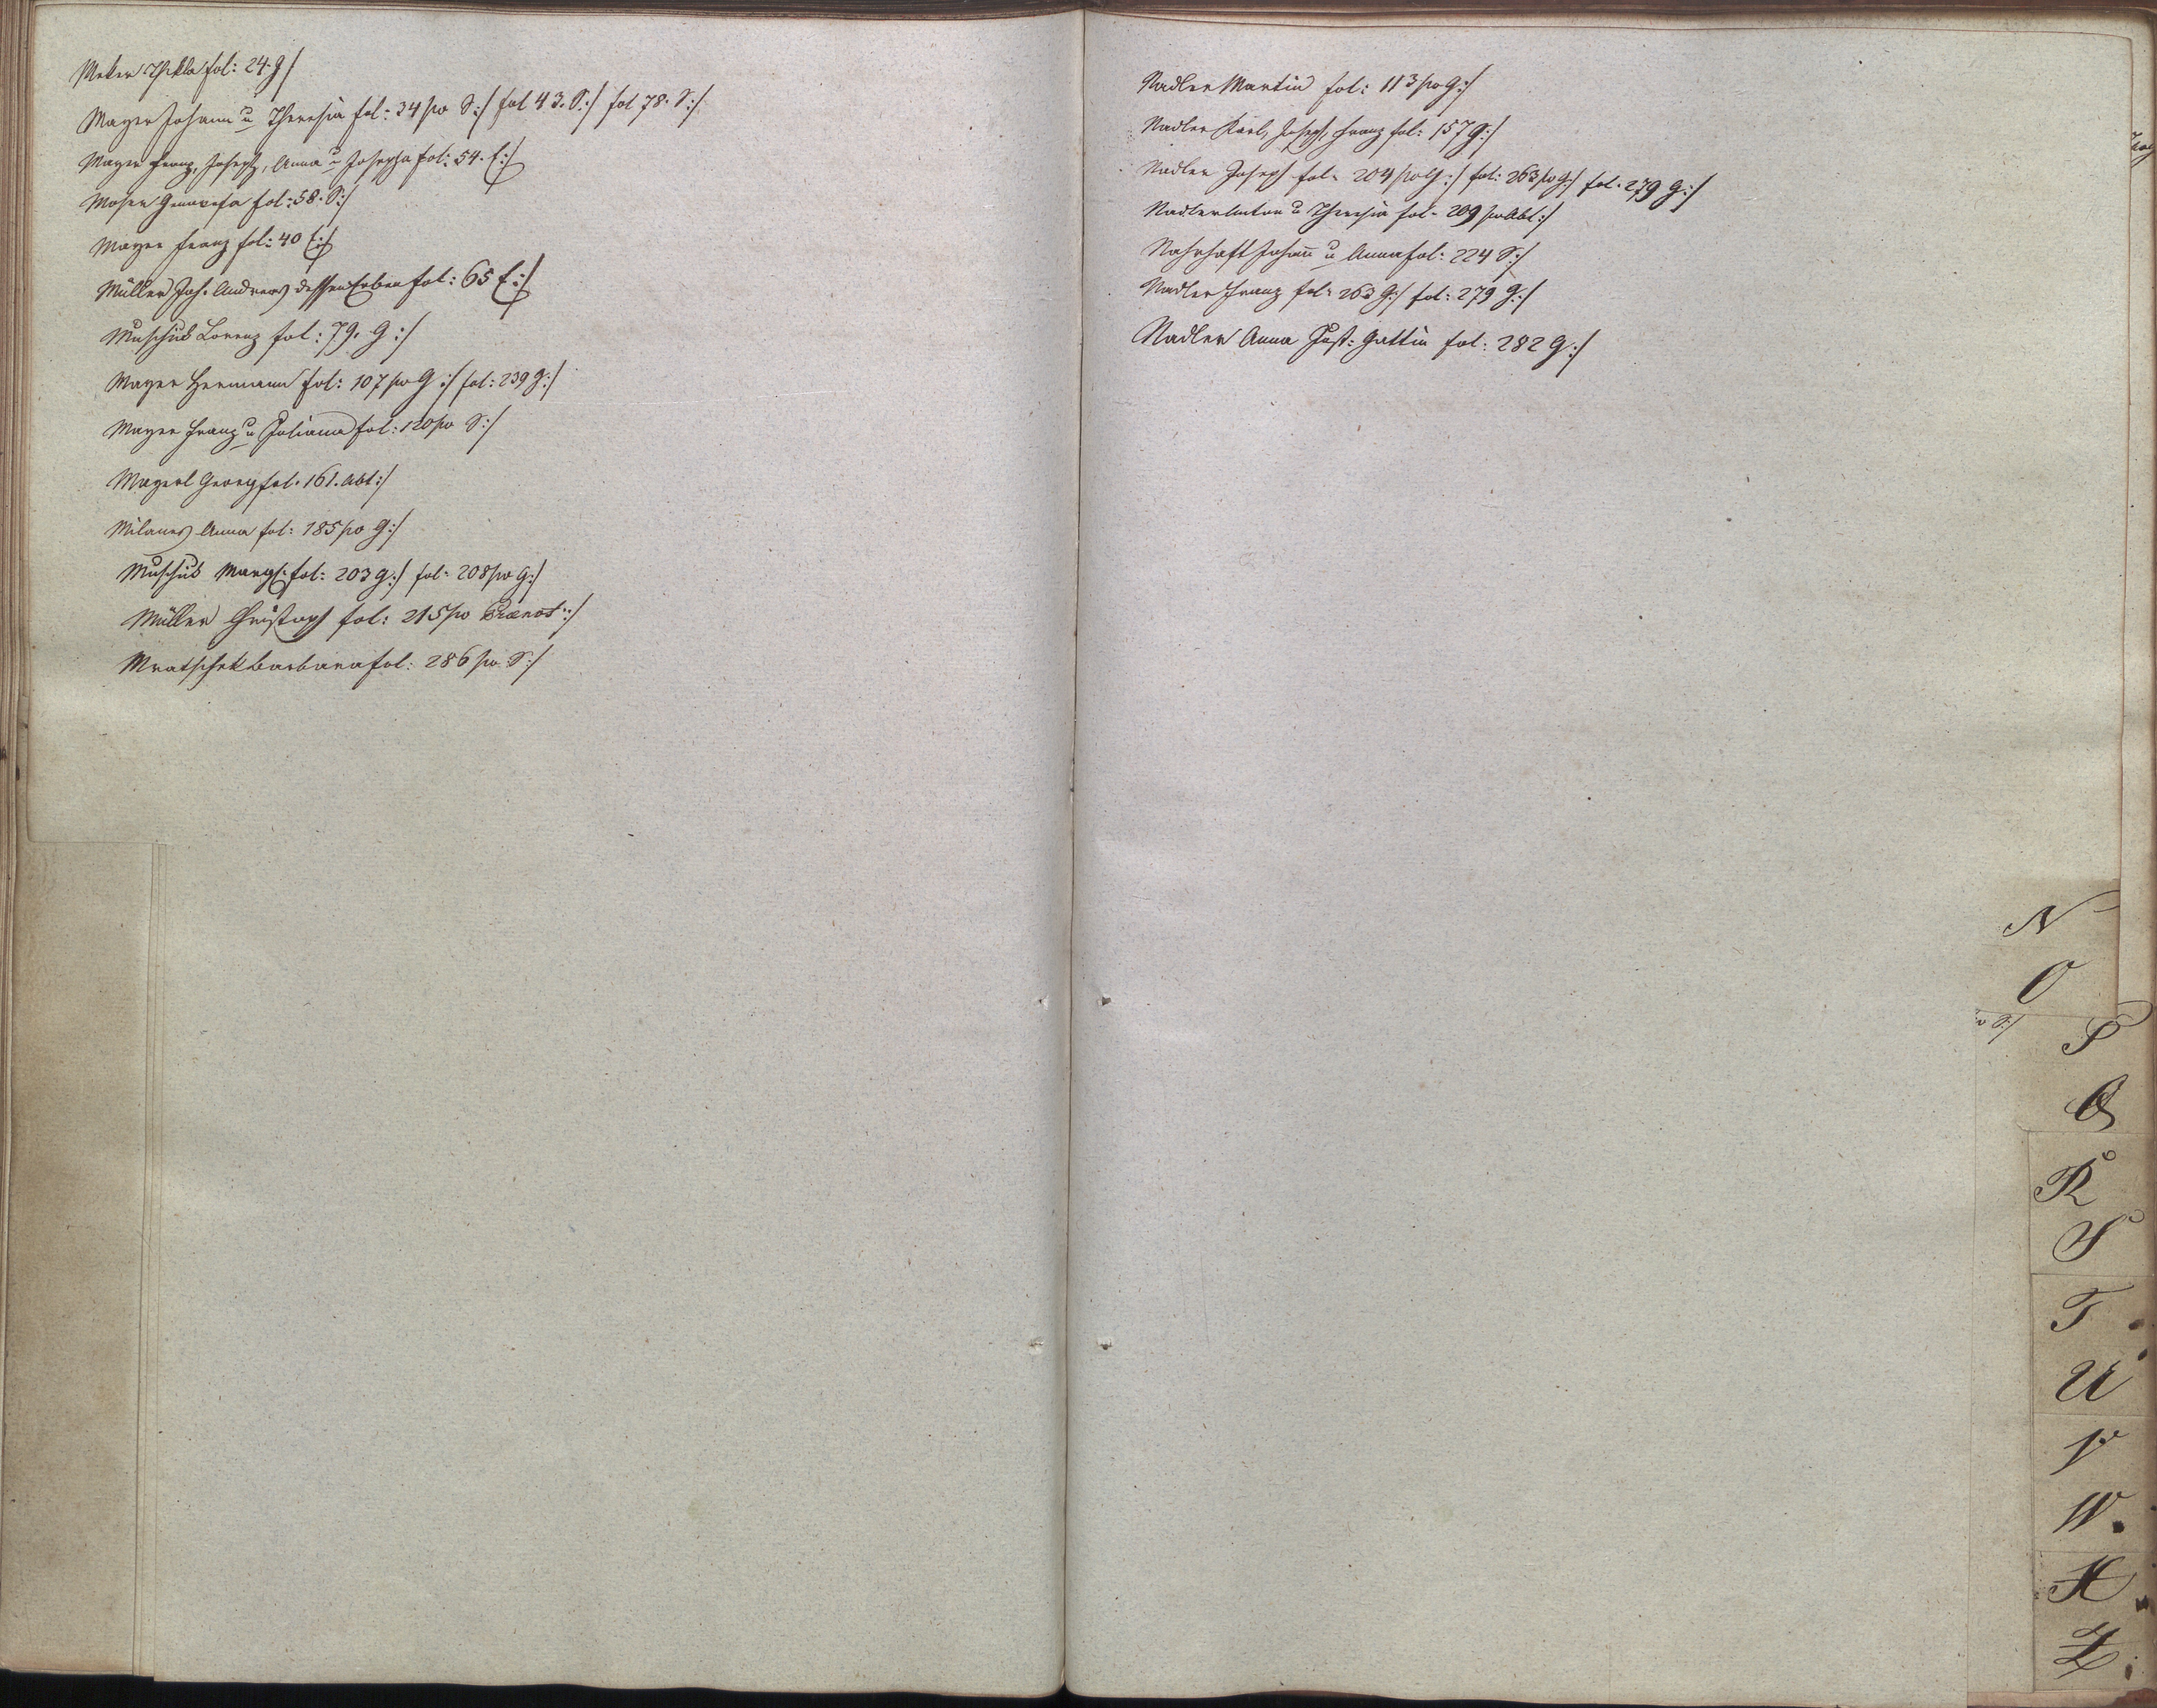 Meker Thekla fol: 24. G/
Mayer Johann u Theresia fol: 34 po S:/ fol 43. S:/ fol 78. S:/
Mayer Franz, Joseph, Anna u Josepha fol: 54. E:/
Moser Genovefa fol: 58. S:/
Mayer Franz fol: 40 E:/
Müller Joh. Andreas dessen Erben fol: 65 E:/
Muschik Lorenz fol: 79. G:/
Mayer Hermann fol: 107 po G:/ fol: 239 G:/
Mayer Franz u Juliana fol: 120 po S:/
Mayerl Georg fol. 161. Abt:/
Milanes Anna fol: 185 po G:/
Muschik Margh: fol: 203 G:/ fol: 208 po G:/
Müller Christoph fol: 215 po Prænot:/
Mratschek Barbara fol: 286 po S:/
Nadler Martin fol: 113 po G:/
Nadler Karl, Joseph, Franz fol: 157 G:/
Nadler Joseph fol: 204 po G:/ fol: 263 po G:/ fol. 279 G:/
Nadler Anton u Theresia fol: 209 po Abt:/
Nahrhaft Johann u Anna fol: 224 S:/
Nadler Franz fol: 263 G:/ fol: 279 G:/
Nadler Anna Just: Gattin fol: 282 G:/
N
O
S:/
P
Q
R
S
T
U
V
W.
X
Z